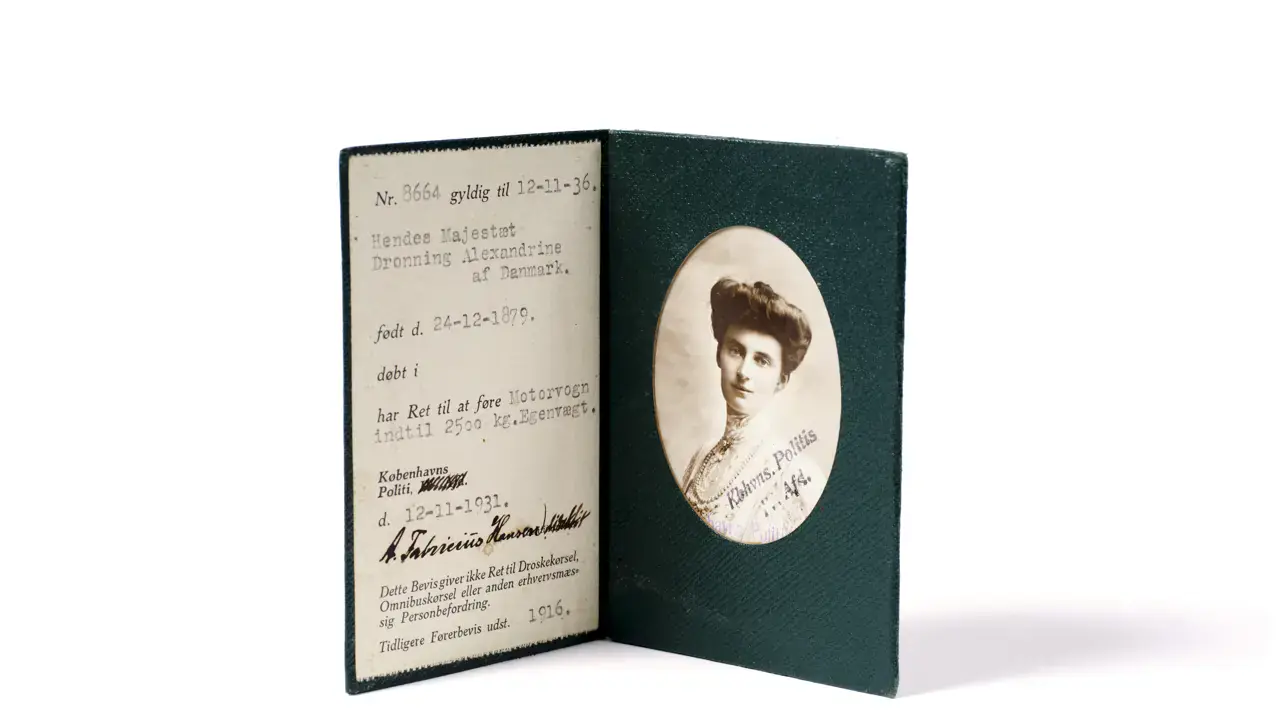 Nr. 8664 gyldig til 12-11-36.
Hendes Majestæt
Dronning Alexandrine
af Danmark.
født d. 24-12-1879.
døbt i
har Ret til at føre Motorvogn
indtil 2500 kg.Egenvægt.
Københavns
Politi,
d. 12-11-1931.
A. Fabricius Hansen
Dette Bevis giver ikke Ret til Droskekørsel,
Omnibuskørsel eller anden erhvervsmæs-
sig Personbefordring.
Tidligere Førerbevis udst. 1916.
Kbhvns. Politis
Afd.